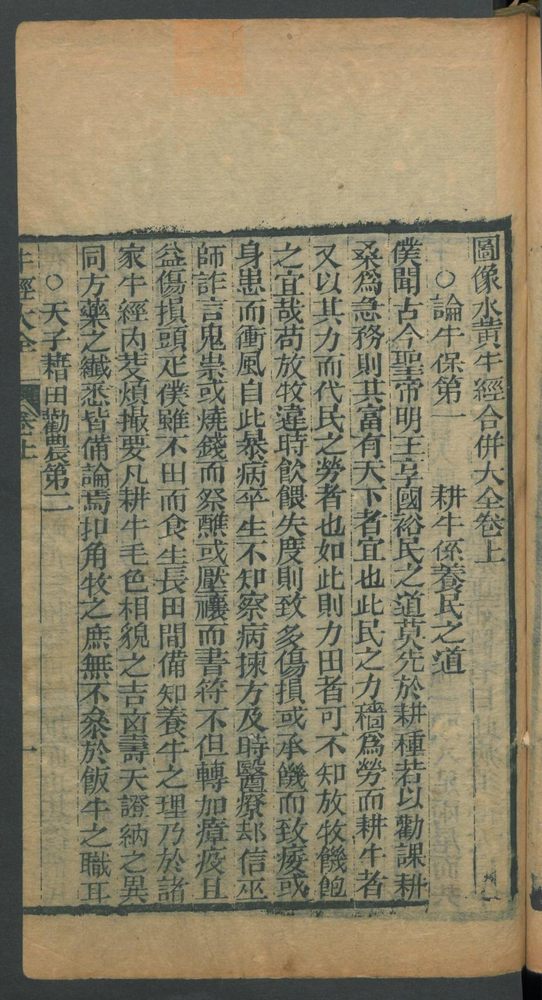 圖像水黃牛經合併大全卷上
○論牛保第一 耕牛係養民之道
僕聞古今聖帝明王享國裕民之道莫先於耕種若以勸課耕
桑爲急務則其富有天下者宜也此民之力穡爲勞而耕牛者
又以其力而代民之勞者也如此則力田者可不知放牧饑飽
之宜哉苟放牧違時飲餵失度則致多傷損或承饑而致疲或
身患而衝風自此暴病卒生不知察病揀方及時醫療却信巫
師詐言鬼祟或燒錢而祭醮或壓禳而書符不但轉加瘴疫且
益傷損頭疋僕雖不田而食生長田間備知養牛之理乃於諸
家牛經內芟煩撮要凡耕牛毛色相貌之吉凶壽夭證納之異
同方藥之纎悉皆備論焉扣角牧之庶無不叅於飯牛之職耳
○天子耤田勸農第二
牛經大全 卷上 一